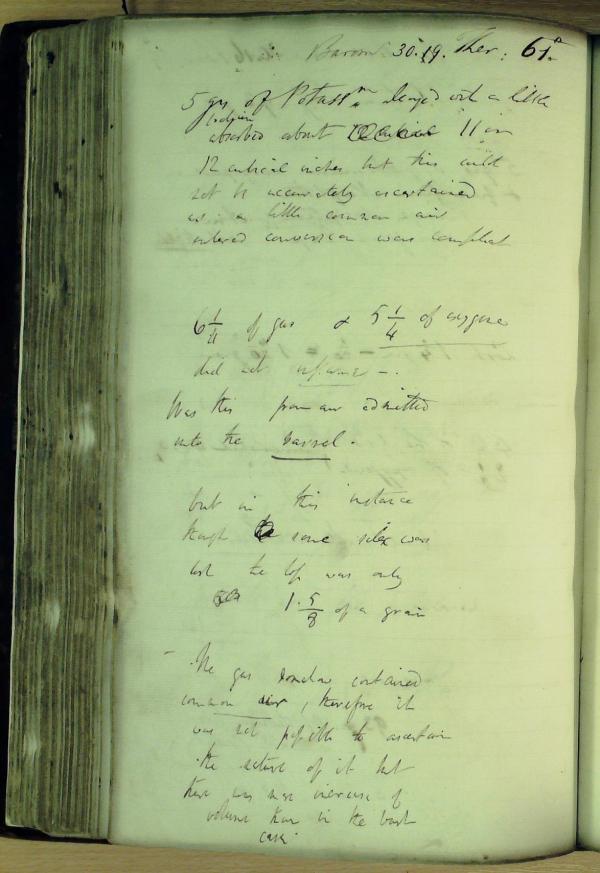 Barom. 30.19. Ther: 61°.
5 grs of Potassm charged with a little
absorbed about 11 or
12 cubical inches but this could
not be accurately ascertained
as a little common air
entered conversion was complete
6 1/4 of gas & 5 1/4 of oxygene
did not inflame -.
Was this from air admitted
into the barrel.
but in this instance
though some silex was
lost the loss was only
1. 5/8 of a grain
- The gas contained
common air, therefore it
was not possible to ascertain
the nature of it but
there was more increase of
volume than in the last
case.